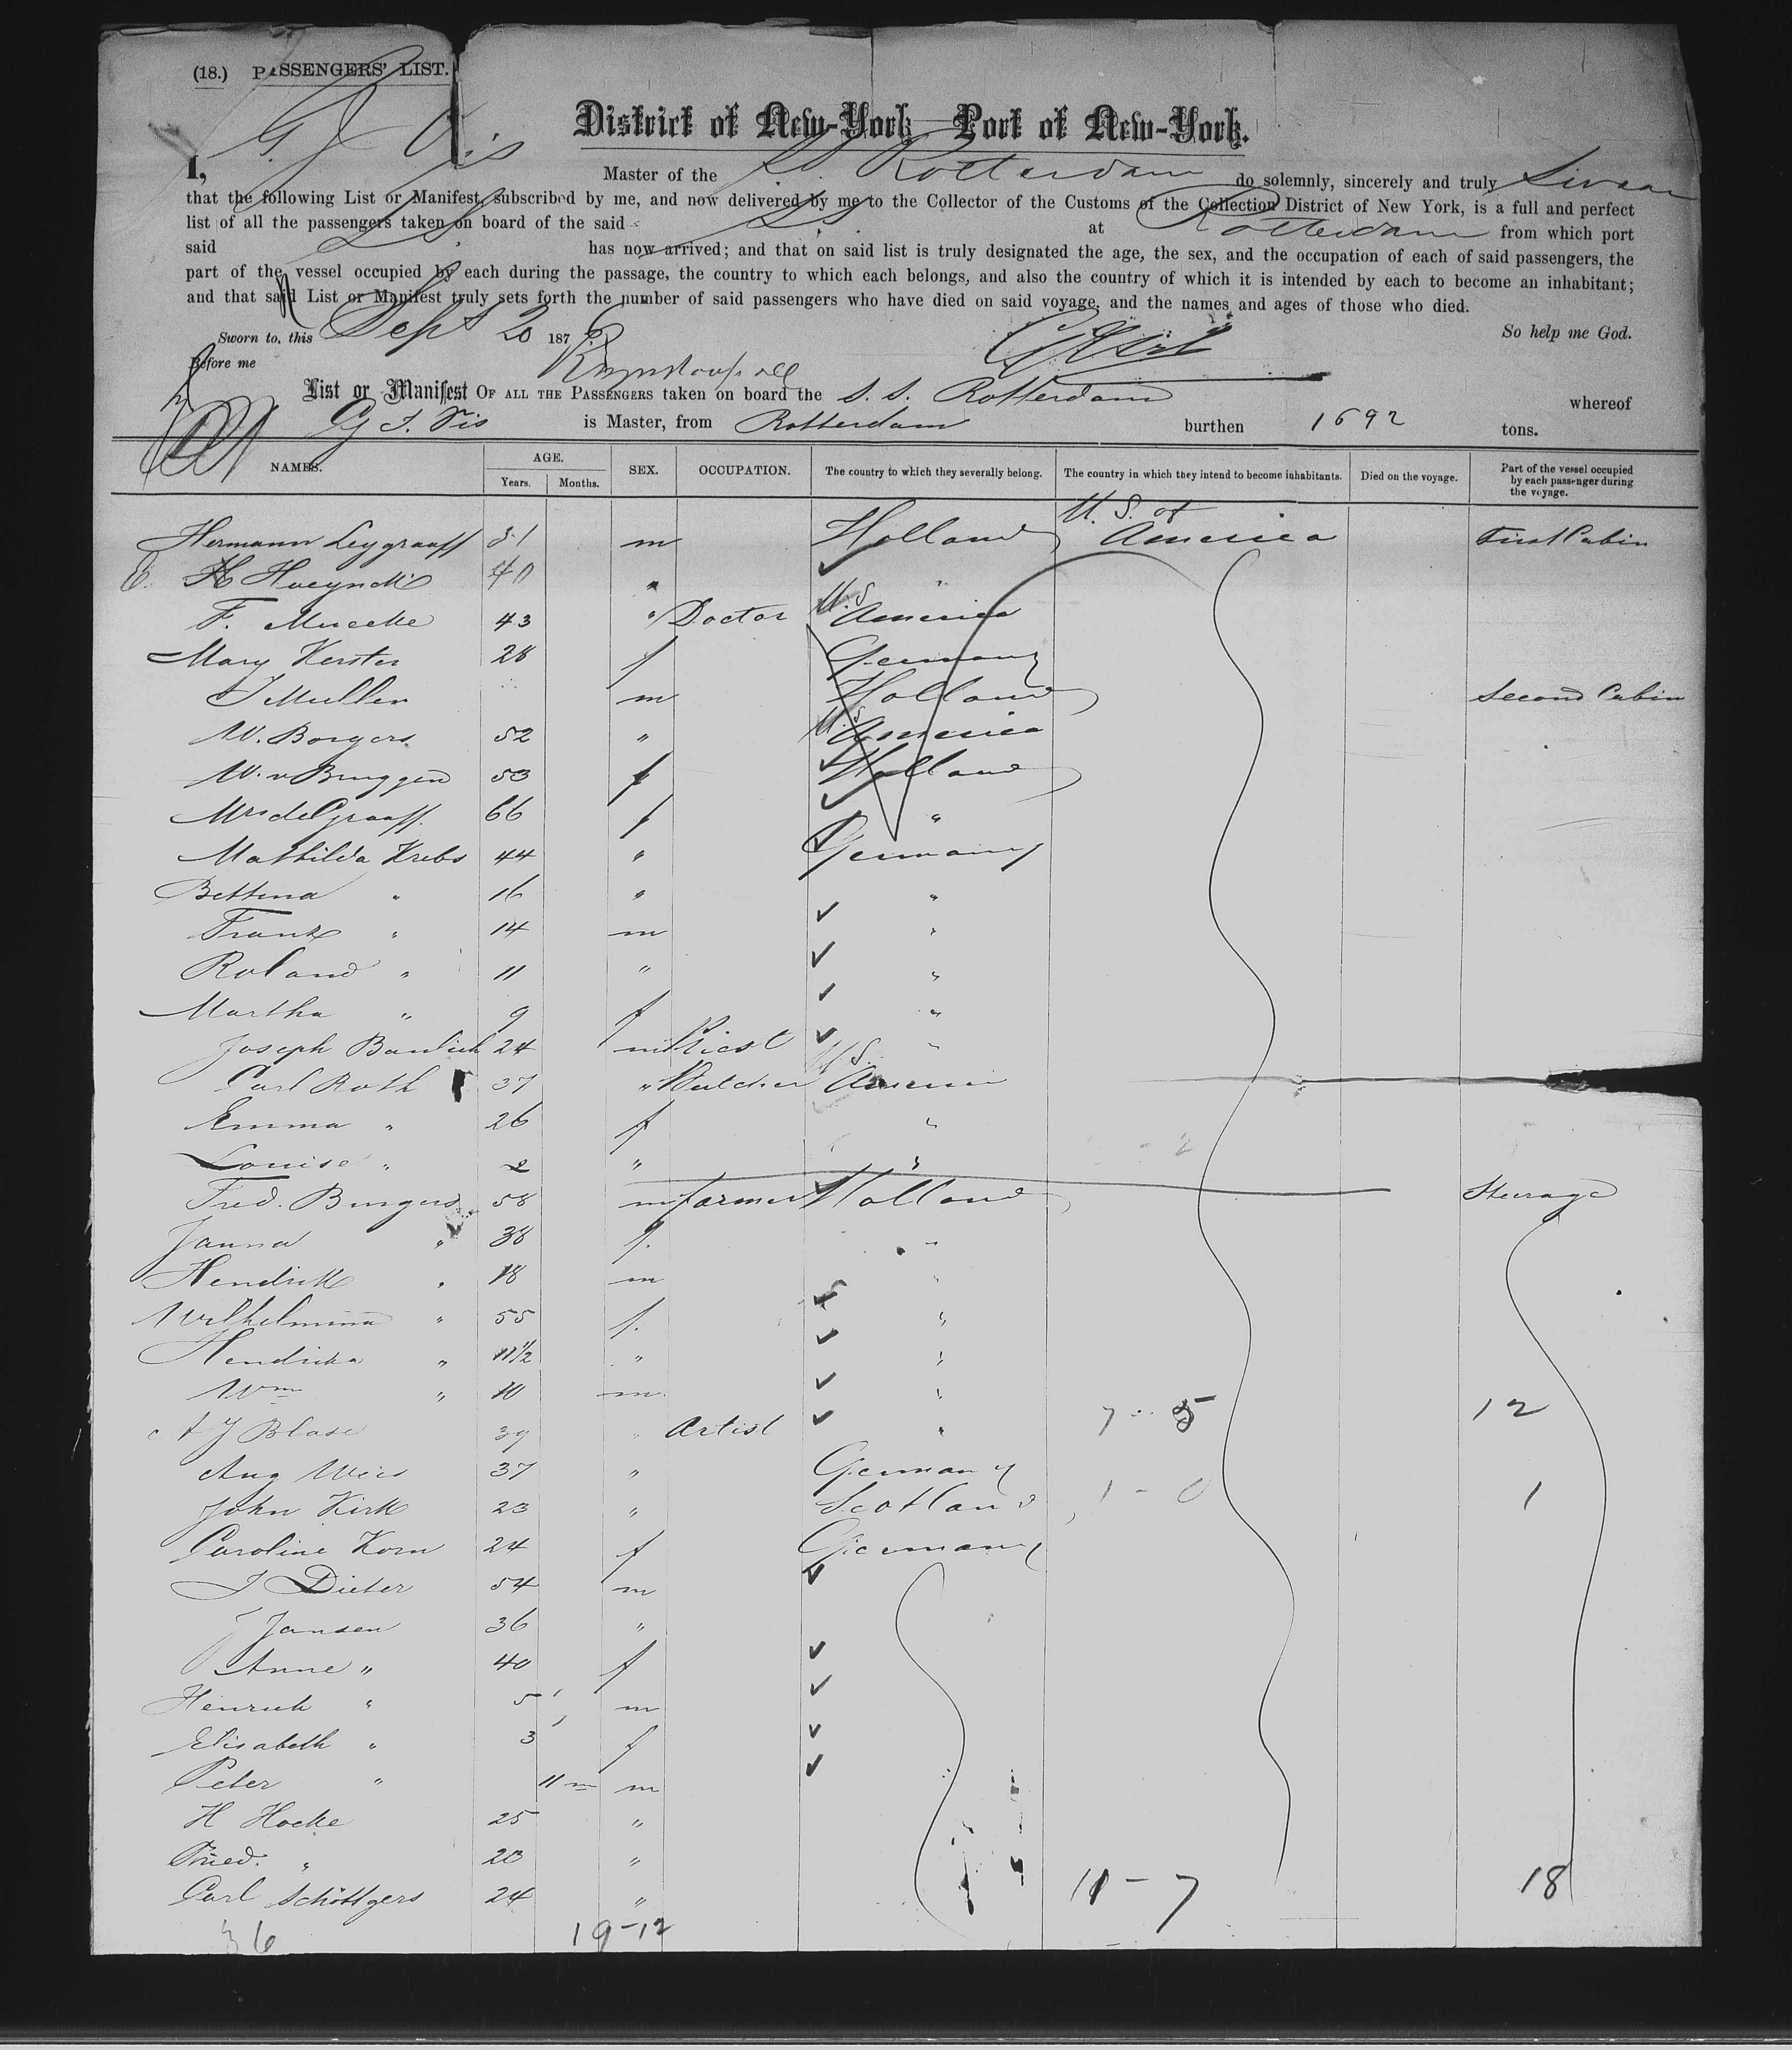 (18.) PASSENGERS' LIST.
District of New-York—Port of New-York.
I, G. J. Vis Master of the S.S. Rotterdam do solemnly, sincerely and truly Swear
that the following List or Manifest, subscribed by me, and now delivered by me to the Collector of the Customs of the Collection District of New York, is a full and perfect
list of all the passengers taken on board of the said S.S. at Rotterdam from which port
said S.S. has now arrived; and that on said list is truly designated the age, the sex, and the occupation of each of said passengers, the
part of the vessel occupied by each during the passage, the country to which each belongs, and also the country of which it is intended by each to become an inhabitant;
and that said List or Manifest truly sets forth the number of said passengers who have died on said voyage, and the names and ages of those who died.
Sworn to, this Sept 20 187 So help me God.
Before me
List or Manifest OF ALL THE PASSENGERS taken on board the S. S. Rotterdam whereof
G J. Vis is Master, from Rotterdam burthen 1692 tons.
NAMES. AGE. Years. Months. SEX. OCCUPATION. The country to which they severally belong. The country in which they intend to become inhabitants. Died on the voyage. Part of the vessel occupied by each passenger during the voyage.
Hermann Leygraaff 31 m Holland U. S. of America First Cabin
40 "
F. Muecke 43 " Doctor U.S. America
Mary Kersten 28 f Germany
J Muller m Holland Second Cabin
W. Borgers 52 " U.S. America
W. v Bruggen 53 f Holland
Mrs de Graaff. 66 f "
Mathilda Krebs 44 " Germany
Bettina " 16 " "
Frank " 14 m "
Roland " 11 " "
Martha " 9 f "
Joseph 24 m Priest "
Carl Roth 37 " Butcher U.S. America
Emma " 26 f "
Louise " 2 " "
Fred. Burgers 58 m farmer Holland Steerage
Janna " 38 f. "
Hendrik " 18 m "
Wilhelmina " 55 f. "
Hendrika " 11½ " "
Wm " 10 m. "
Blase 39 " Artist " 7 - 5 12
Aug 37 " Germany
John Kirk 23 " Scotland 1 - 0 1
Caroline Korn 24 f Germany
J Dieter 54 m
J Jansen 36 "
Anne " 40 f
Henrich " 5 m
Elisabeth " 3 f
Peter " 11 m m
H Hocke 25 "
Fried. " 20 "
Carl Schöttgers 24 " 11 - 7 18
36 19-12